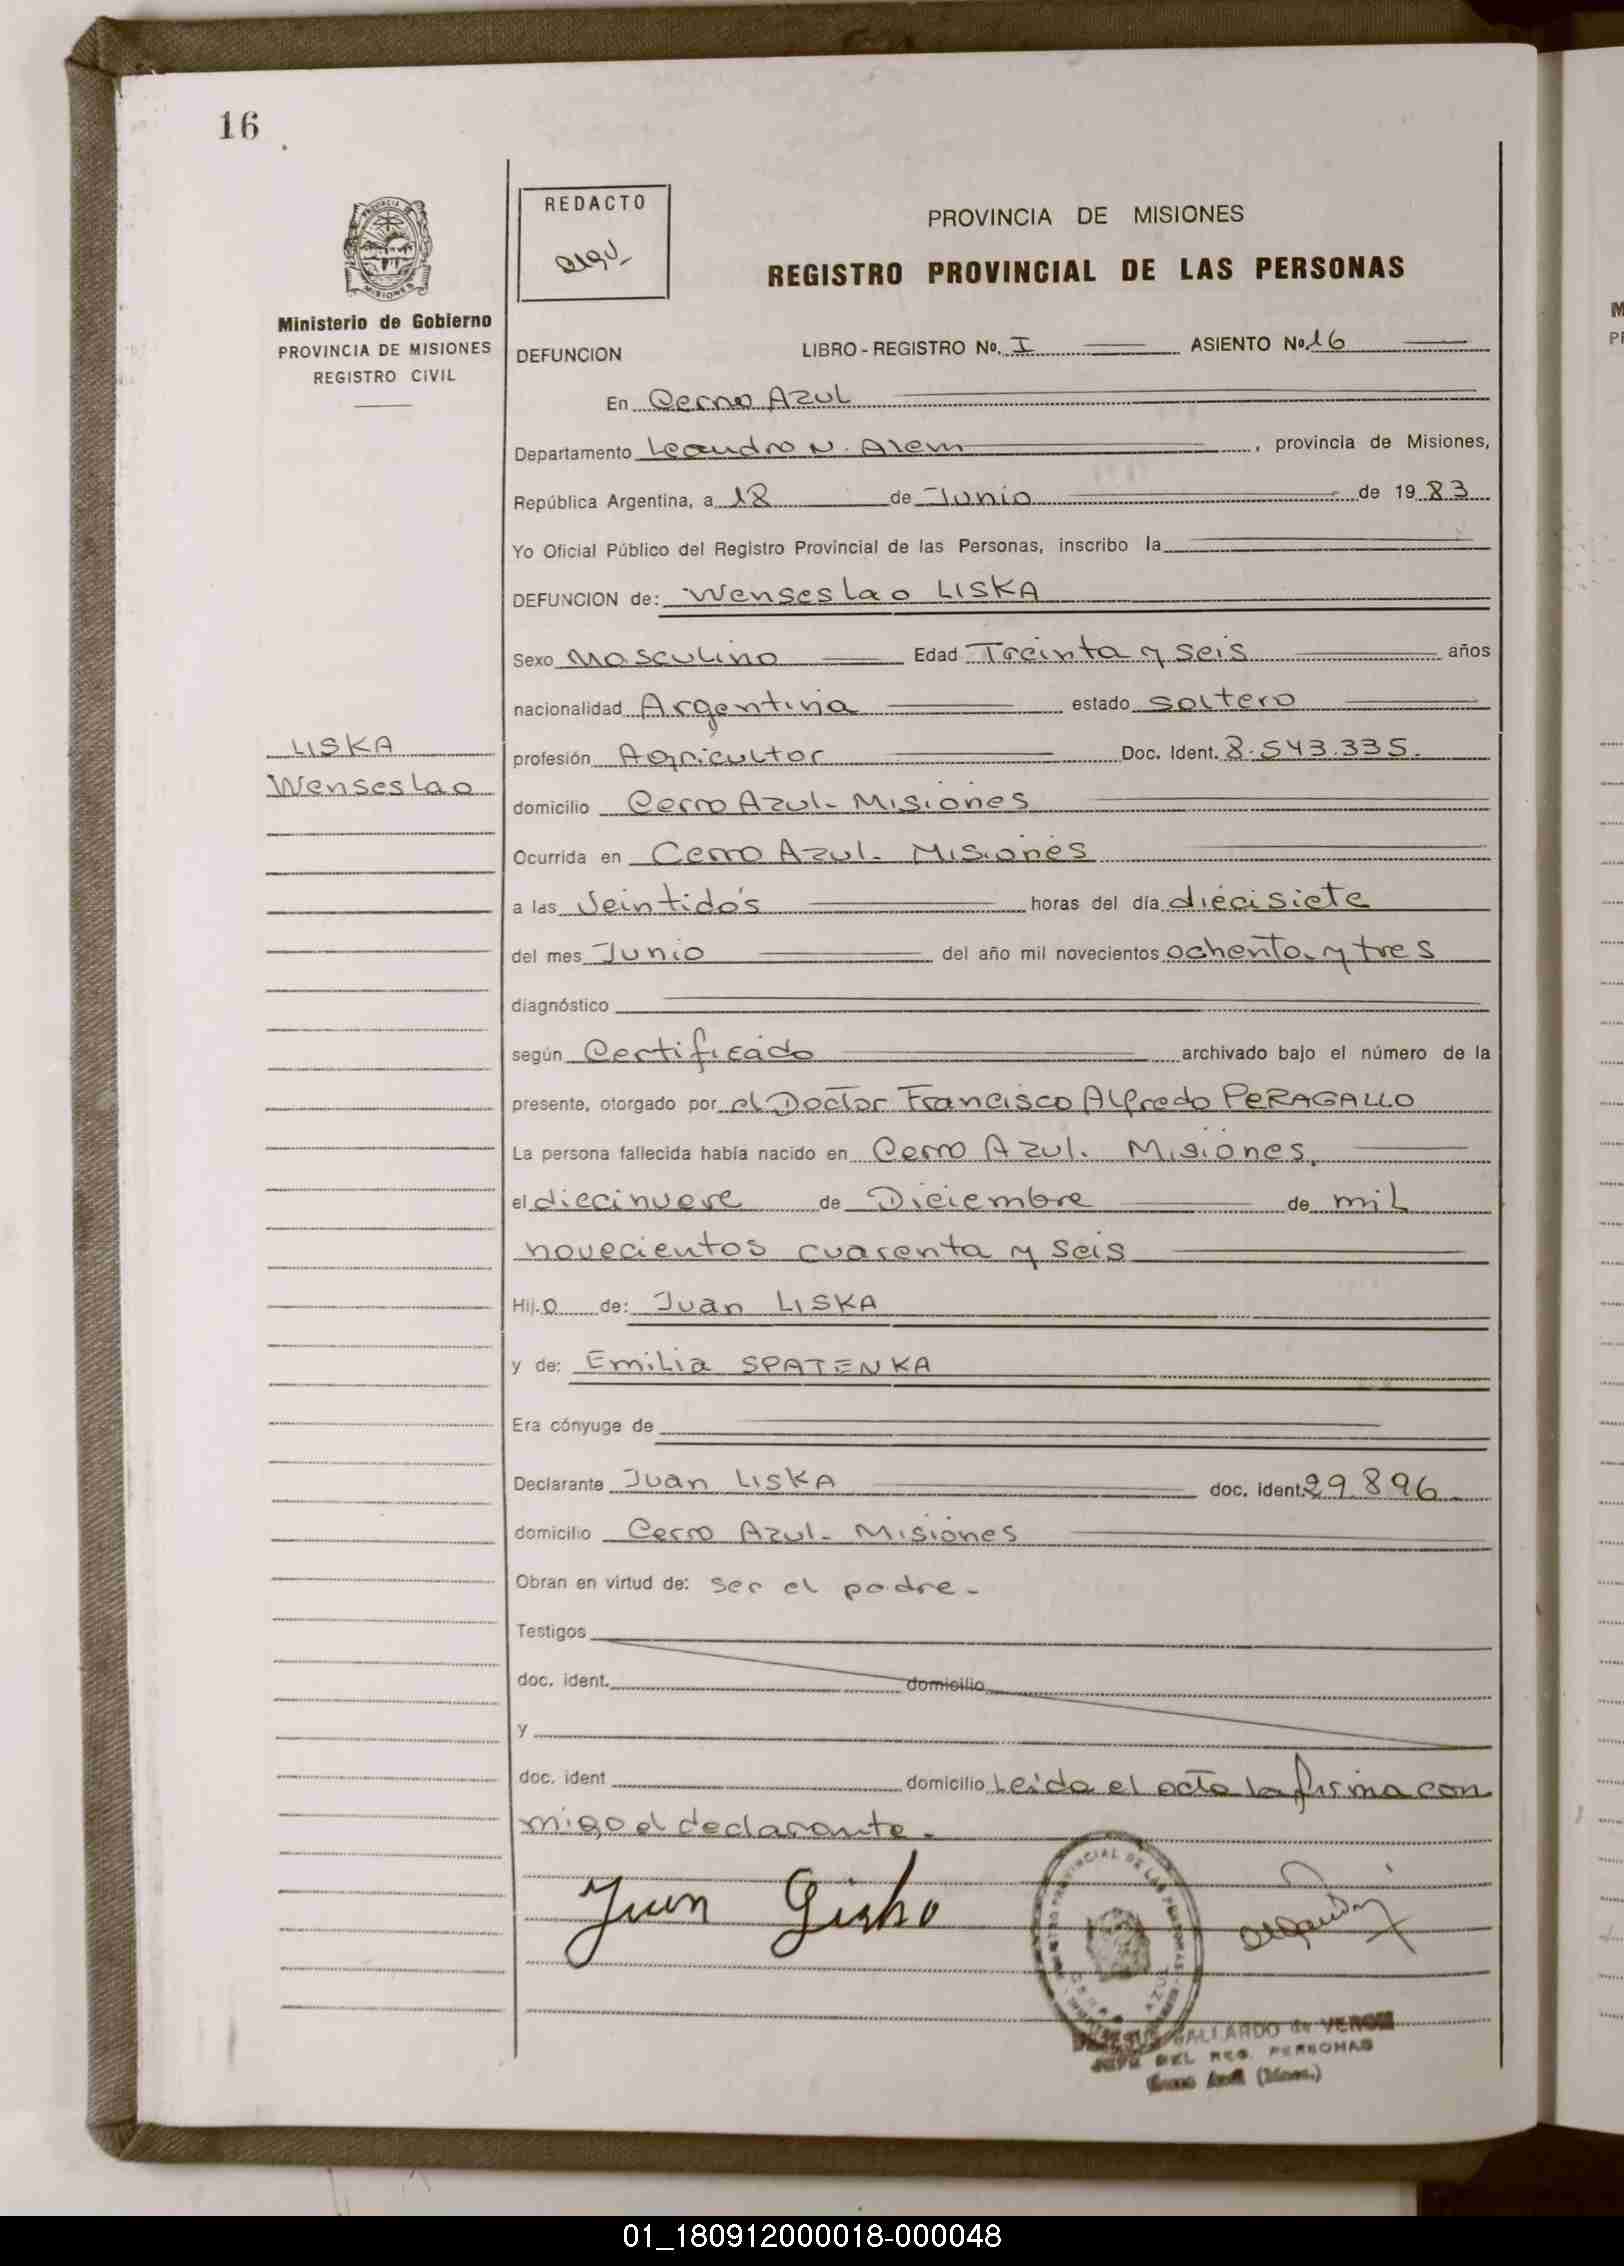 16
PROVINCIA DE MISIONES
Ministerio de Gobierno
PROVINCIA DE MISIONES
REGISTRO CIVIL
LISKA
Wenseslao
REDACTO
PROVINCIA DE MISIONES
REGISTRO PROVINCIAL DE LAS PERSONAS
DEFUNCION LIBRO - REGISTRO No. I ASIENTO No. 16
En Cerro Azul
Departamento Leandro N. Alem, provincia de Misiones,
República Argentina, a 18 de Junio de 1983
Yo Oficial Público del Registro Provincial de las Personas, inscribo la
DEFUNCION de: Wenseslao LISKA
Sexo Masculino Edad Treinta y seis años
nacionalidad Argentina estado soltero
profesión Agricultor Doc. Ident. 8.543.335.
domicilio Cerro Azul - Misiones
Ocurrida en Cerro Azul. Misiones
a las Veintidós horas del día diecisiete
del mes Junio del año mil novecientos ochenta y tres
diagnóstico
según Certificado archivado bajo el número de la
presente, otorgado por el Doctor Francisco Alfredo PERAGALLO
La persona fallecida había nacido en Cerro Azul. Misiones,
el diecinueve de Diciembre de mil
novecientos cuarenta y seis
Hij.o de: Juan LISKA
y de: Emilia SPATENKA
Era cónyuge de
Declarante Juan LISKA doc. ident. 29.896
domicilio Cerro Azul - Misiones
Obran en virtud de: ser el padre -
Testigos
doc. ident. domicilio
y
doc. ident domicilio Leida el acta la firma con
migo el declarante -
Juan
GALLARDO de VERON
JEFE DEL REG. PERSONAS
Cerro Azul (Mnes.)
01_180912000018-000048